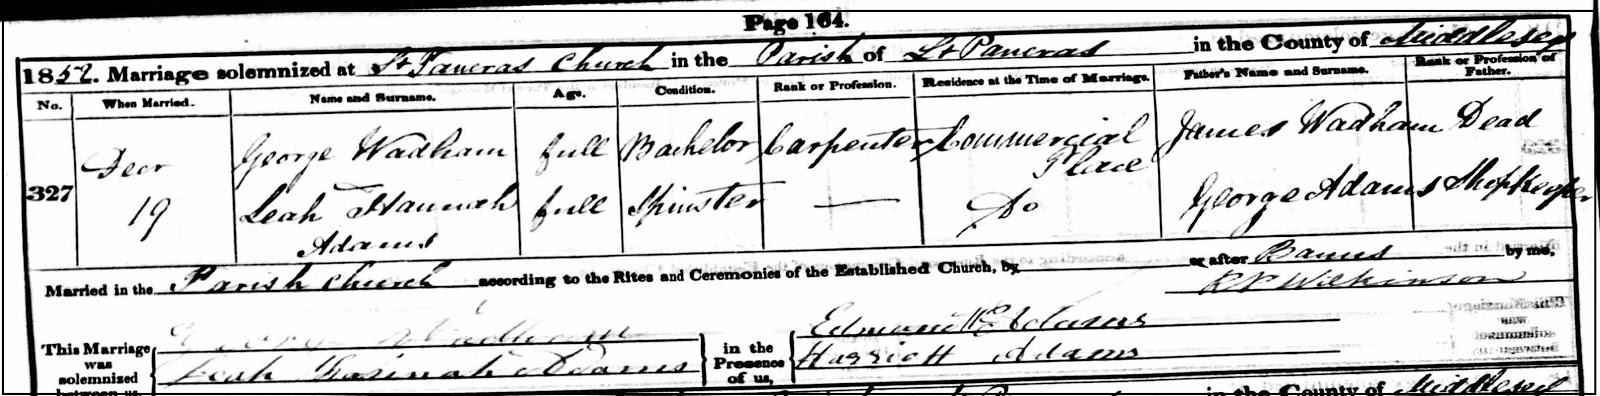 Page 164.
1852. Marriage solemnized at St Pancras Church in the Parish of St Pancras in the County of Middlesex
No. When Married. Name and Surname. Age. Condition. Rank or Profession. Residence at the Time of Marriage. Father's Name and Surname. Rank or Profession of Father.
327 Decr 19 George Wadham full Bachelor Carpenter Commercial Place James Wadham Dead
Leah Hannah Adams full Spinster — Do George Adams Shopkeeper
Married in the Parish Church according to the Rites and Ceremonies of the Established Church, by or after Banns by me,
Wilkinson
This Marriage was solemnized between us, George Wadham
Leah Hannah Adams
in the Presence of us, Edmund Adams
Harriett Adams
in the County of Middlesex